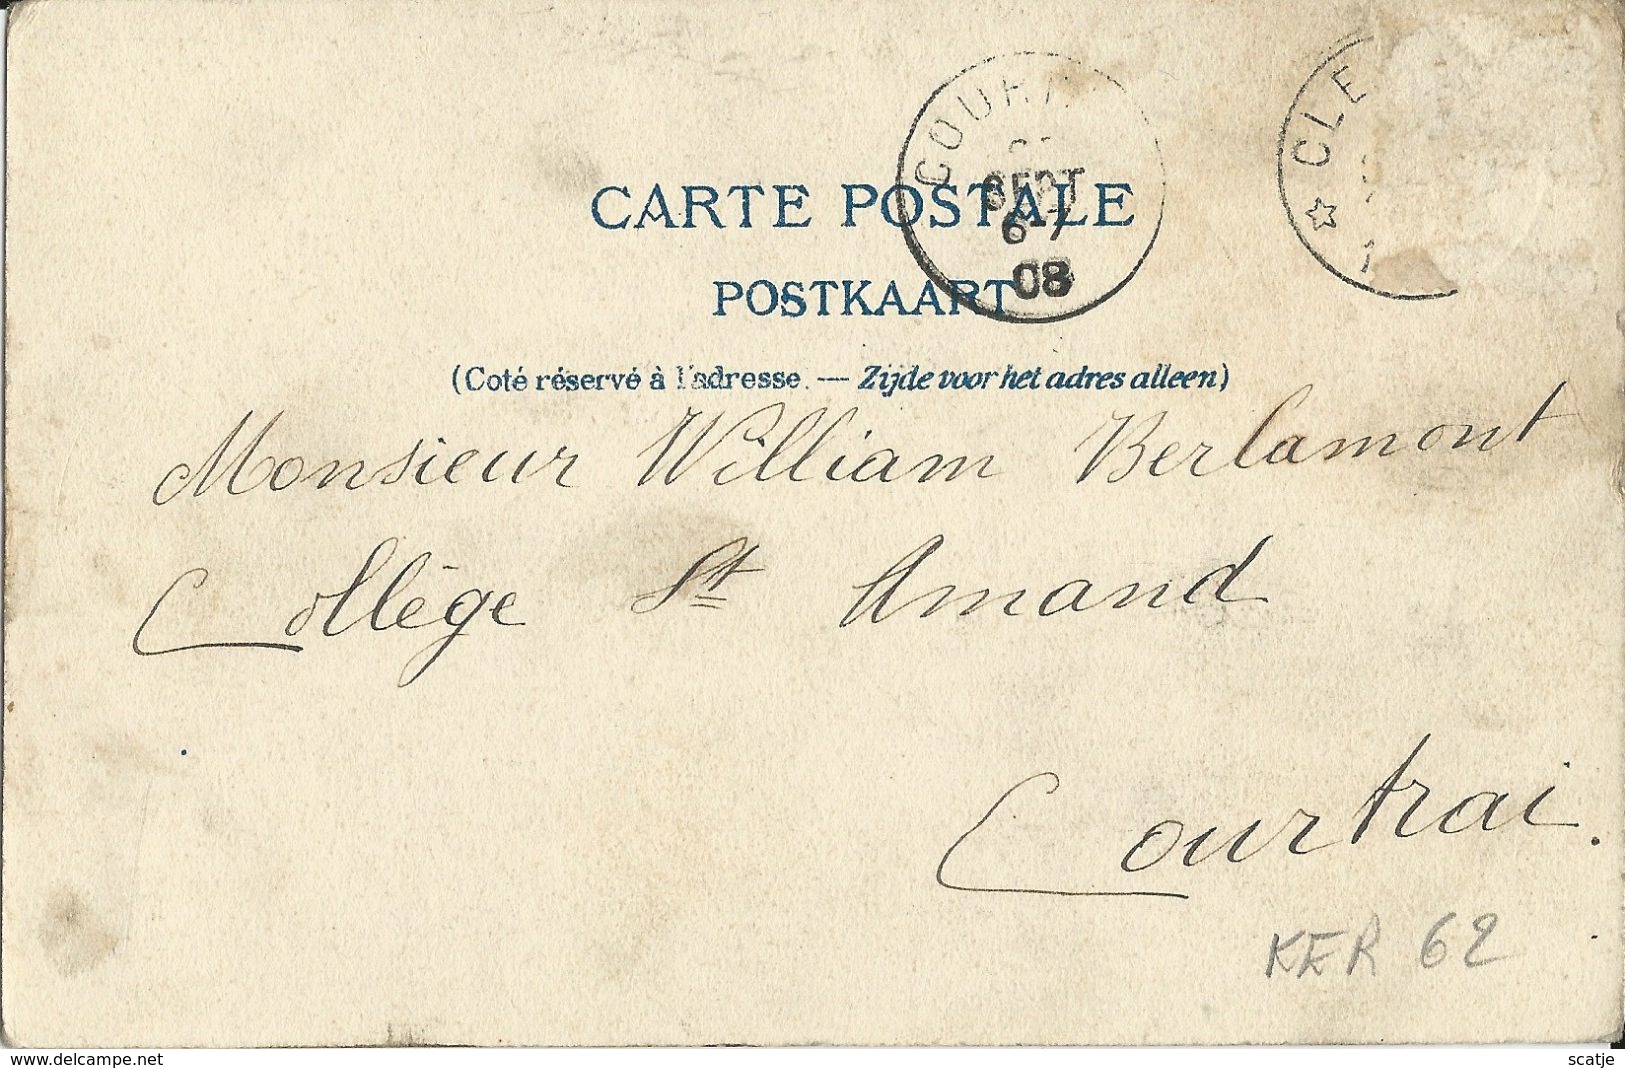 COUR
SEPT
6-7
08
CLE
CARTE POSTALE
POSTKAART
(Coté réservé à l'adresse. — Zijde voor het adres alleen)
Monsieur William Berlamont
Collège St Amand
Courtrai.
KER 62
www.delcampe.net
scatje